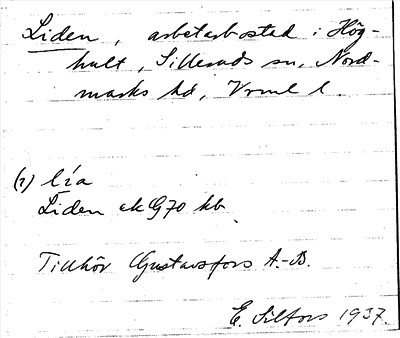 Liden, arbetarbostad i Hög-
hult, Silleruds sn, Nord-
marks hd, Vrml l.
(1) lía
Liden ek G70 kb
Tillhör Gustavsfors A.-B.
E. Silfors 1937.